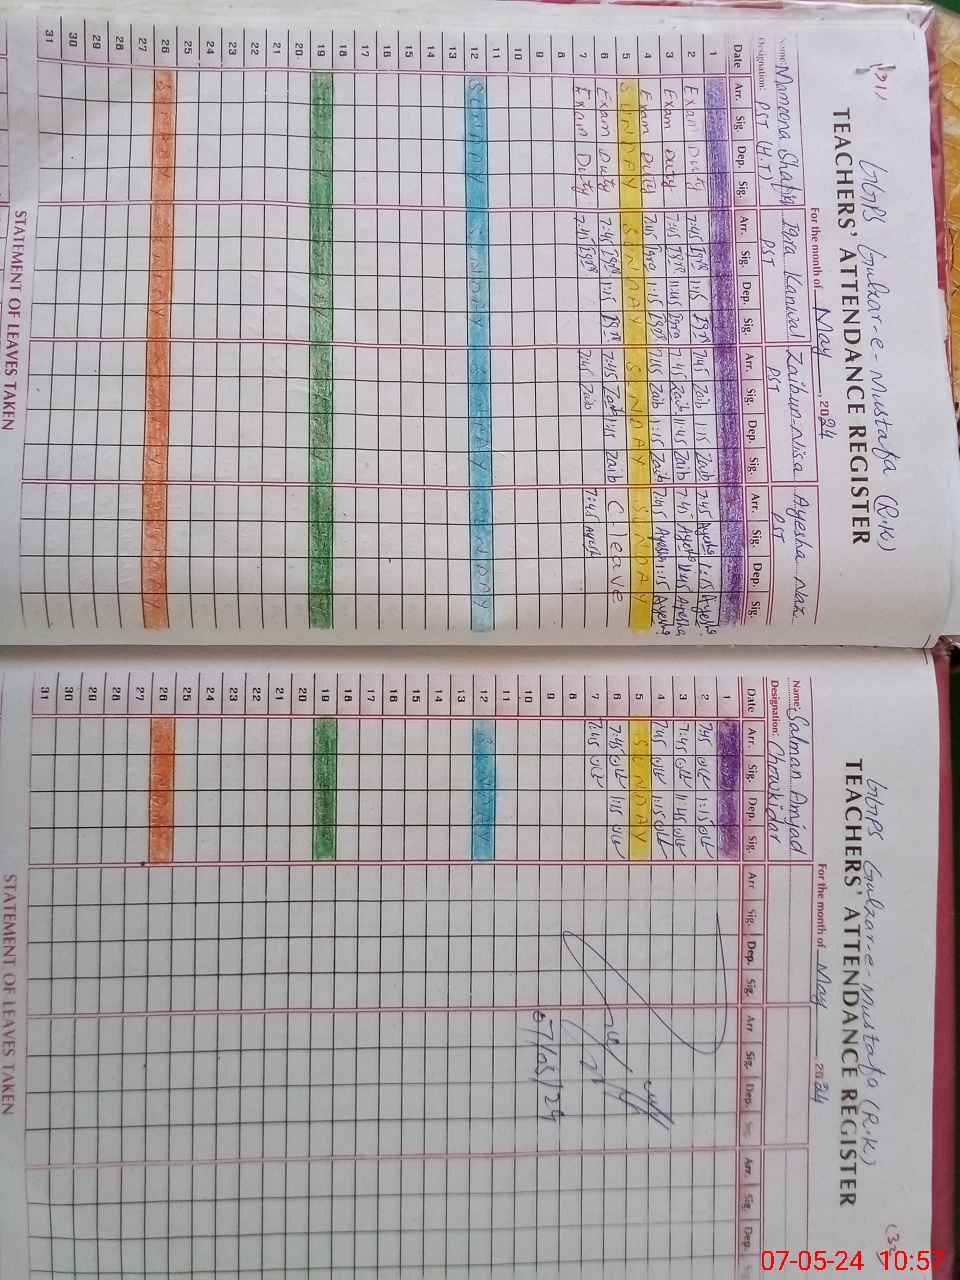 (31)
GGPS Gulzar-e-Mustafa (R.K)
TEACHERS' ATTENDANCE REGISTER
For the month of May, 2024
Name: Mamoona Shafi Iqra Kanwal Zaibun-Nisa Ayesha Naz
Designation: PST (H.T) PST PST PST
Date Arr. Sig. Dep. Sig. Arr. Sig. Dep. Sig. Arr. Sig. Dep. Sig. Arr. Sig. Dep. Sig.
1
2 Exam Duty 7:45 Iqra 1:15 Iqra 7:45 Zaib 1:15 Zaib 7:45 Ayesha 1:15 Ayesha
3 Exam Duty 7:45 Iqra 11:45 Iqra 7:45 Zaib 11:45 Zaib 7:45 Ayesha 11:45 Ayesha
4 Exam Duty 7:45 Iqra 1:15 Iqra 7:45 Zaib 1:15 Zaib 7:45 Ayesha 1:15 Ayesha
5 SUNDAY SUNDAY SUNDAY SUNDAY
6 Exam Duty 7:45 Iqra 1:15 Iqra 7:45 Zaib 1:15 Zaib C-leave
7 Exam Duty 7:45 Iqra 7:45 Zaib 7:45 Ayesha
8
9
10
11
12 SUNDAY SUNDAY SUNDAY SUNDAY
13
14
15
16
17
18
19 SUNDAY SUNDAY SUNDAY SUNDAY
20
21
22
23
24
25
26 SUNDAY SUNDAY SUNDAY SUNDAY
27
28
29
30
31
STATEMENT OF LEAVES TAKEN
(32)
GGPS Gulzar-e-Mustafa (R.K)
TEACHERS' ATTENDANCE REGISTER
For the month of May, 2024
Name: Salman Amjad
Designation: Chowkidar
Date Arr. Sig. Dep. Sig. Arr Sig. Dep. Sig. Arr Sig. Dep. Sig. Arr. Sig. Dep. Sig.
1
2 7:45 1:15
3 7:45 11:45
4 7:45 1:15
5 SUNDAY
6 7:45 1:15
7 7:45
8
9
10 07/05/24
11
12 SUNDAY
13
14
15
16
17
18
19 SUNDAY
20
21
22
23
24
25
26 SUNDAY
27
28
29
30
31
STATEMENT OF LEAVES TAKEN
07-05-24 10:57